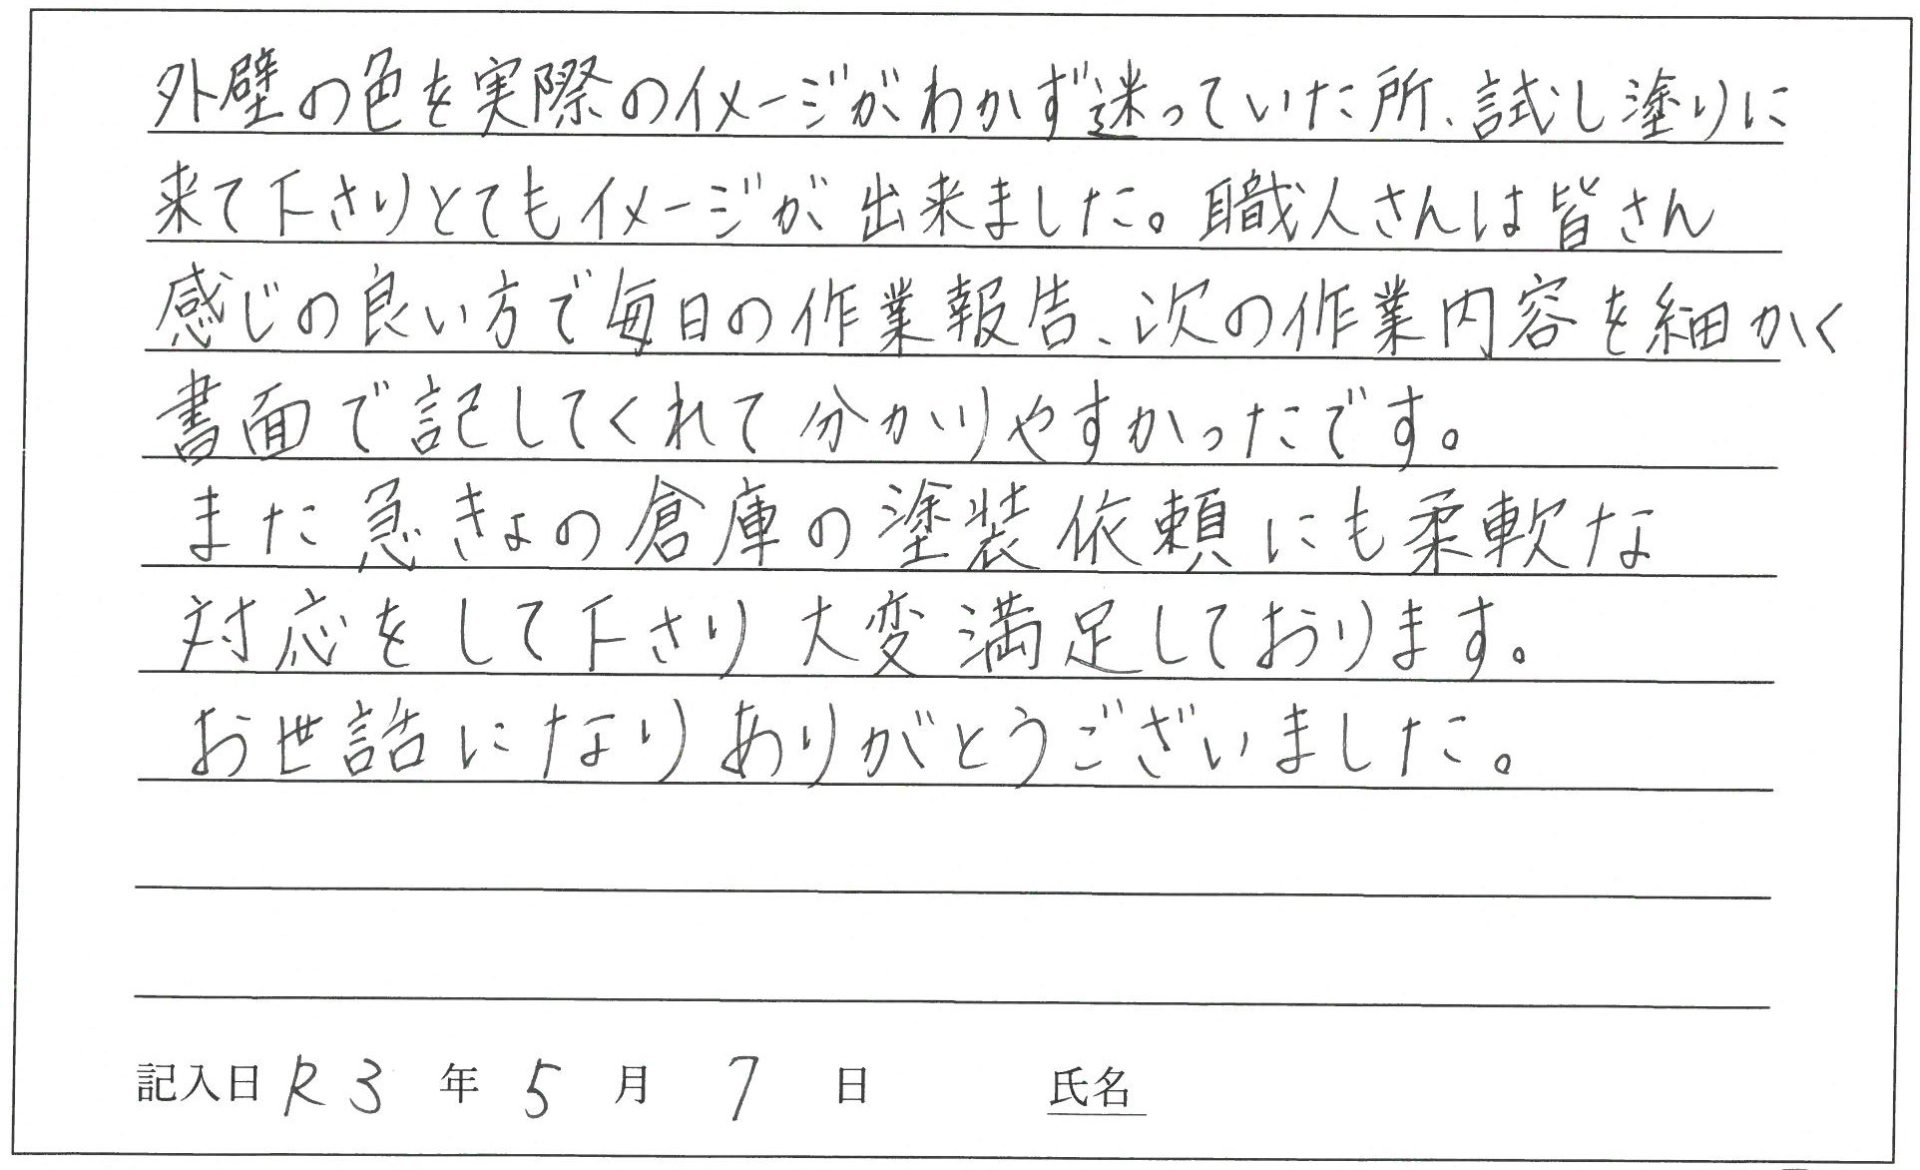 外壁の色を実際のイメージがわかず迷っていた所、試し塗りに
来て下さりとてもイメージが出来ました。職人さんは皆さん
感じの良い方で毎日の作業報告、次の作業内容を細かく
書面で記してくれて分かりやすかったです。
また急きょの倉庫の塗装依頼にも柔軟な
対応をして下さり大変満足しております。
お世話になりありがとうございました。
記入日 R3 年 5 月 7 日 氏名